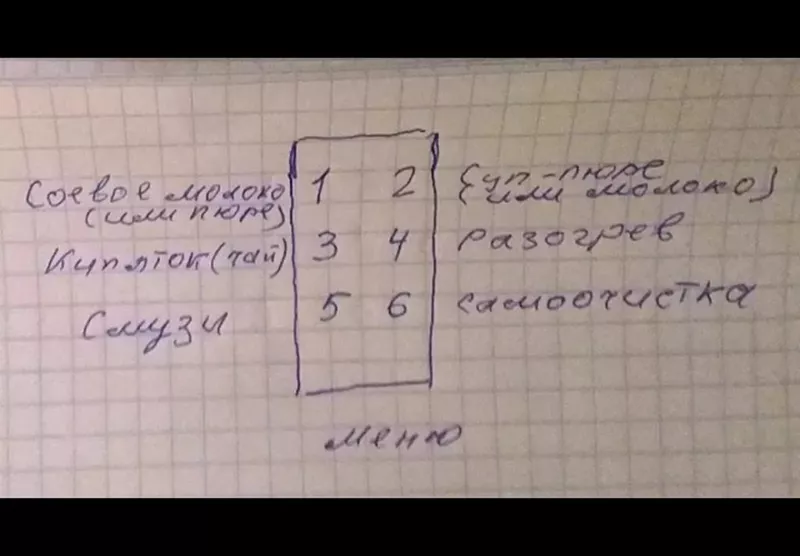 Соевое молоко 1 2 Суп-пюре
(или пюре) (или молоко)
Кипяток (чай) 3 4 разогрев
Смузи 5 6 самоочистка
меню